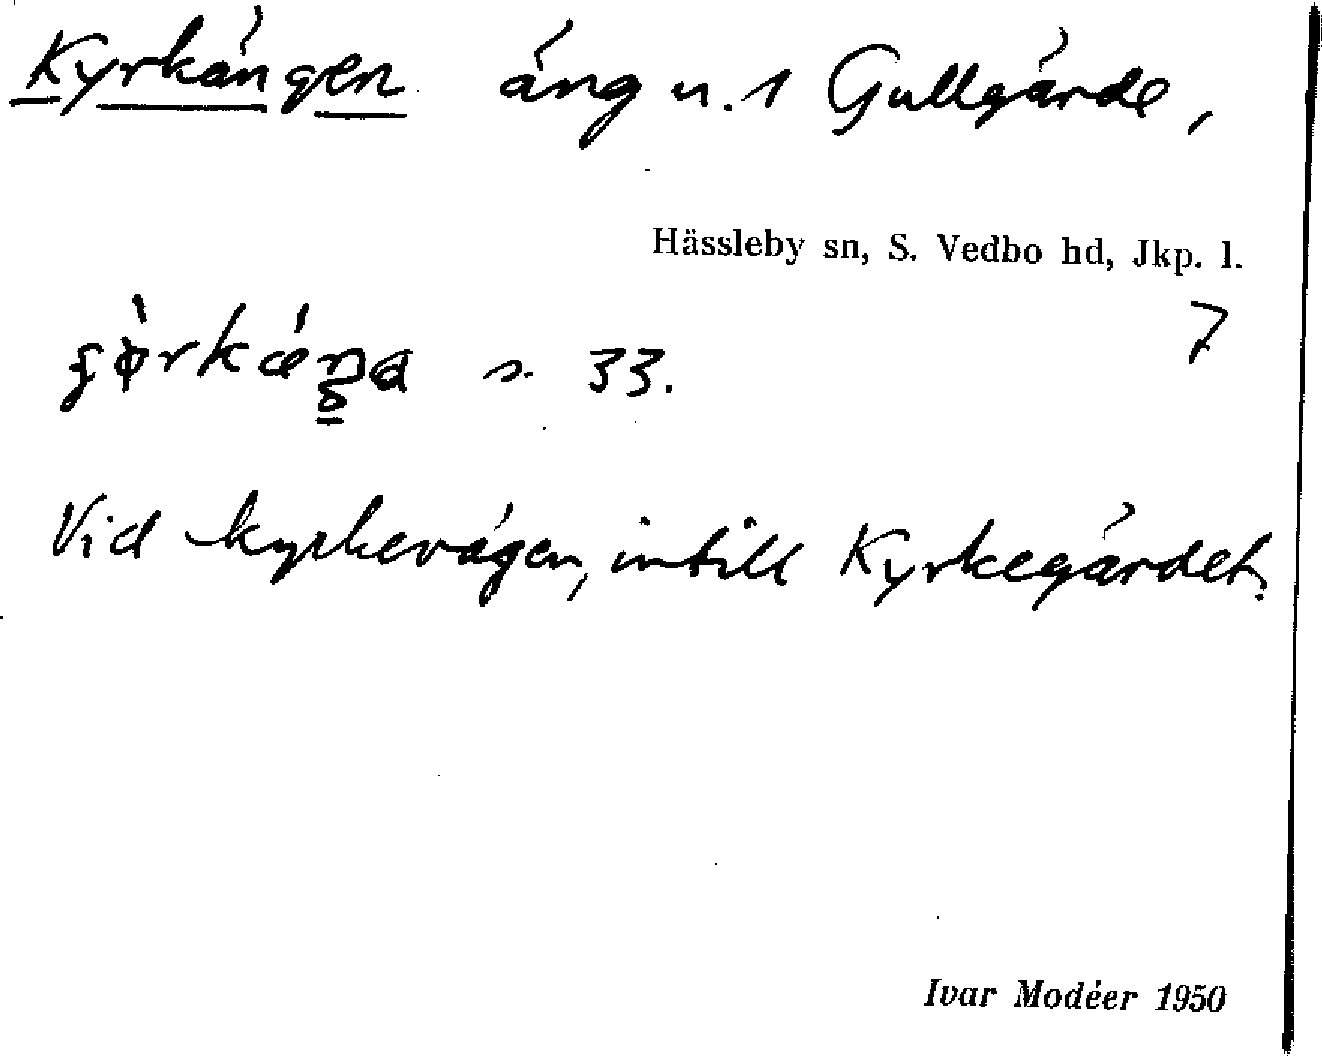 Kyrkängen äng n. 1 Gullgärde,
Hässleby sn, S. Vedbo hd, Jkp. l.
7
s. 33.
Vid kyrkevägen, intill Kyrkegärdet.
Ivar Modéer 1950